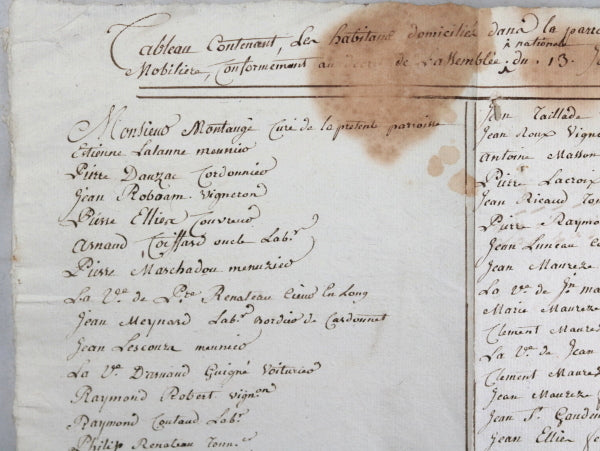 Tableau Contenant, Les habitans domiciliés dans la paro
nationale
Mobiliere, Conformement au décret de L'assemblée du 13. J
Monsieur Montaugé Curé de la présent paroisse
Etienne Lalanne meunier
Pierre Dauzac Cordonnier
Jean Roboam Vigneron
Pierre Elliea Couvreur
Arnaud Coiffard oncle Labr
Pierre Marchadou menuzier
La Ve. de Pre Renateau
Jean Meynard Labr Bordier de Cardonnet
Jean Lescouza meunier
La Ve D'arnaud Guigné Voiturier
Raymond Robert vignon
Raymond Coutaud Labr.
Philip Renateau Tonn.r
Jean Taillade
Jean Roux Vigne
Antoine Masson
Pierre Lacroix
Jean Ricaud Ton
Pierre Raymo
Jean Luneau
Jean Maureze
La ve de Jn ma
Marie Maureze
Clement Maured
La Ve. de Jean
Clement Maured
Jean Maureze
Jean F. Gaudin
Jean Ellie